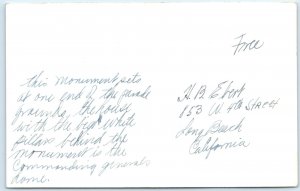 Free
this monument sets
at one end of the parade
grounds, the house
with the best white
pillars behind the
monument is the
commanding generals
home.
H.B. Ebert
853 W 4th Street
Long Beach
California